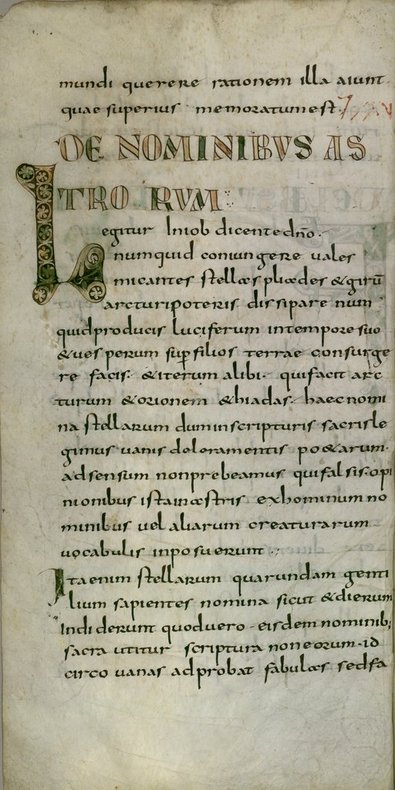 mundi querere rationem illa aiunt
quae superius memoratum est
DE NOMINIBUS AS
TRORUM
Legitur In iob dicente dño.
numquid coniungere vales
micantes stellas pliades & girū
arcturi poteris dissipare num
quid producis luciferum in tempore suo
& vesperum sup filios terrae consurge
re facis. & iterum alibi. qui facit arc
turum & orionem & hiadas. haec nomi
na stellarum dum in scripturis sacris le
gimus vanis doleramentis po&arum.
ad sensum non prebeamus qui falsis opi
nionibus ista in astris ex hominum no
minibus vel aliarum creaturarum
vocabulis inposuerunt
Ita enim stellarum quarundam genti
lium sapientes nomina sicut & dierum
Indiderunt quod vero eisdem nominib;
sacra utitur scriptura non eorum. id
circo vanas adprobat fabulas sed fa